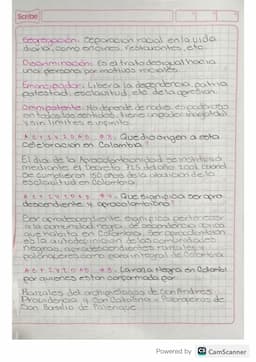 Scribe
Segregación: Separación racial en la vida
diaria, como oficinas, restaurantes, etc.
Discriminación: Es el trato desigual hacia
una persona por motivos raciales.
Emancipador: Libera la dependencia, patria
potestad, esclavitud, etc. de la opresión.
Omnipotente: No depende de nadie, es poderoso
en todos los sentidos, tiene un poder absoluto
y sin límites e infinito.
ACTIVIDAD #3. Que dio origen a esta
celebración en Colombia?
El día de la Afrocolombianidad se instituyó
mediante el Decreto 725 del 2001 cuando
se cumplieron 150 años de abolición de la
esclavitud en Colombia.
ACTIVIDAD #4. Que significa ser afro
descendiente y afrocolombiano?
Ser afrodescendiente significa pertenecer
a la comunidad negra, de ascendencia africa
que habita en Colombia, Ser afrocolombiano
es la autodefinición de las comunidades
negras, afrodescendientes, raizales y
palenqueros como parte integral de Colombia
ACTIVIDAD #5. La raza Negra en Colombia
por quienes están conformada por
Raizales del archipiélago de San Andrés
Providencia y San Catalina y Palenqueros de
San Basilio de Palenque
Powered by CS CamScanner